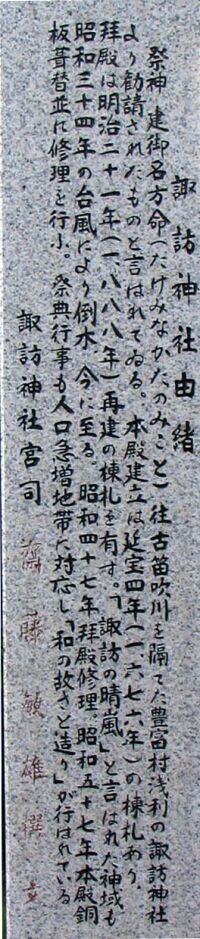 諏訪神社由緒
祭神 建御名方命(たけみなかたのみこと)往古笛吹川を隔てた豊富村浅利の諏訪神社
より勧請されたものと言はれてゐる。本殿建立は延宝四年(一六七六年)の棟札あり。
拝殿は明治二十一年(一、八八八年)再建の棟札を有す。「諏訪の晴嵐」と言はれた神域も
昭和三十四年の台風により倒木、今に至る。昭和四十七年拝殿修理、昭和五十七年本殿銅
板葺替並に修理を行ふ。祭典行事も人口急増地帯に対応し「和の故さと造り」が行はれている
諏訪神社宮司 齋藤敏雄撰